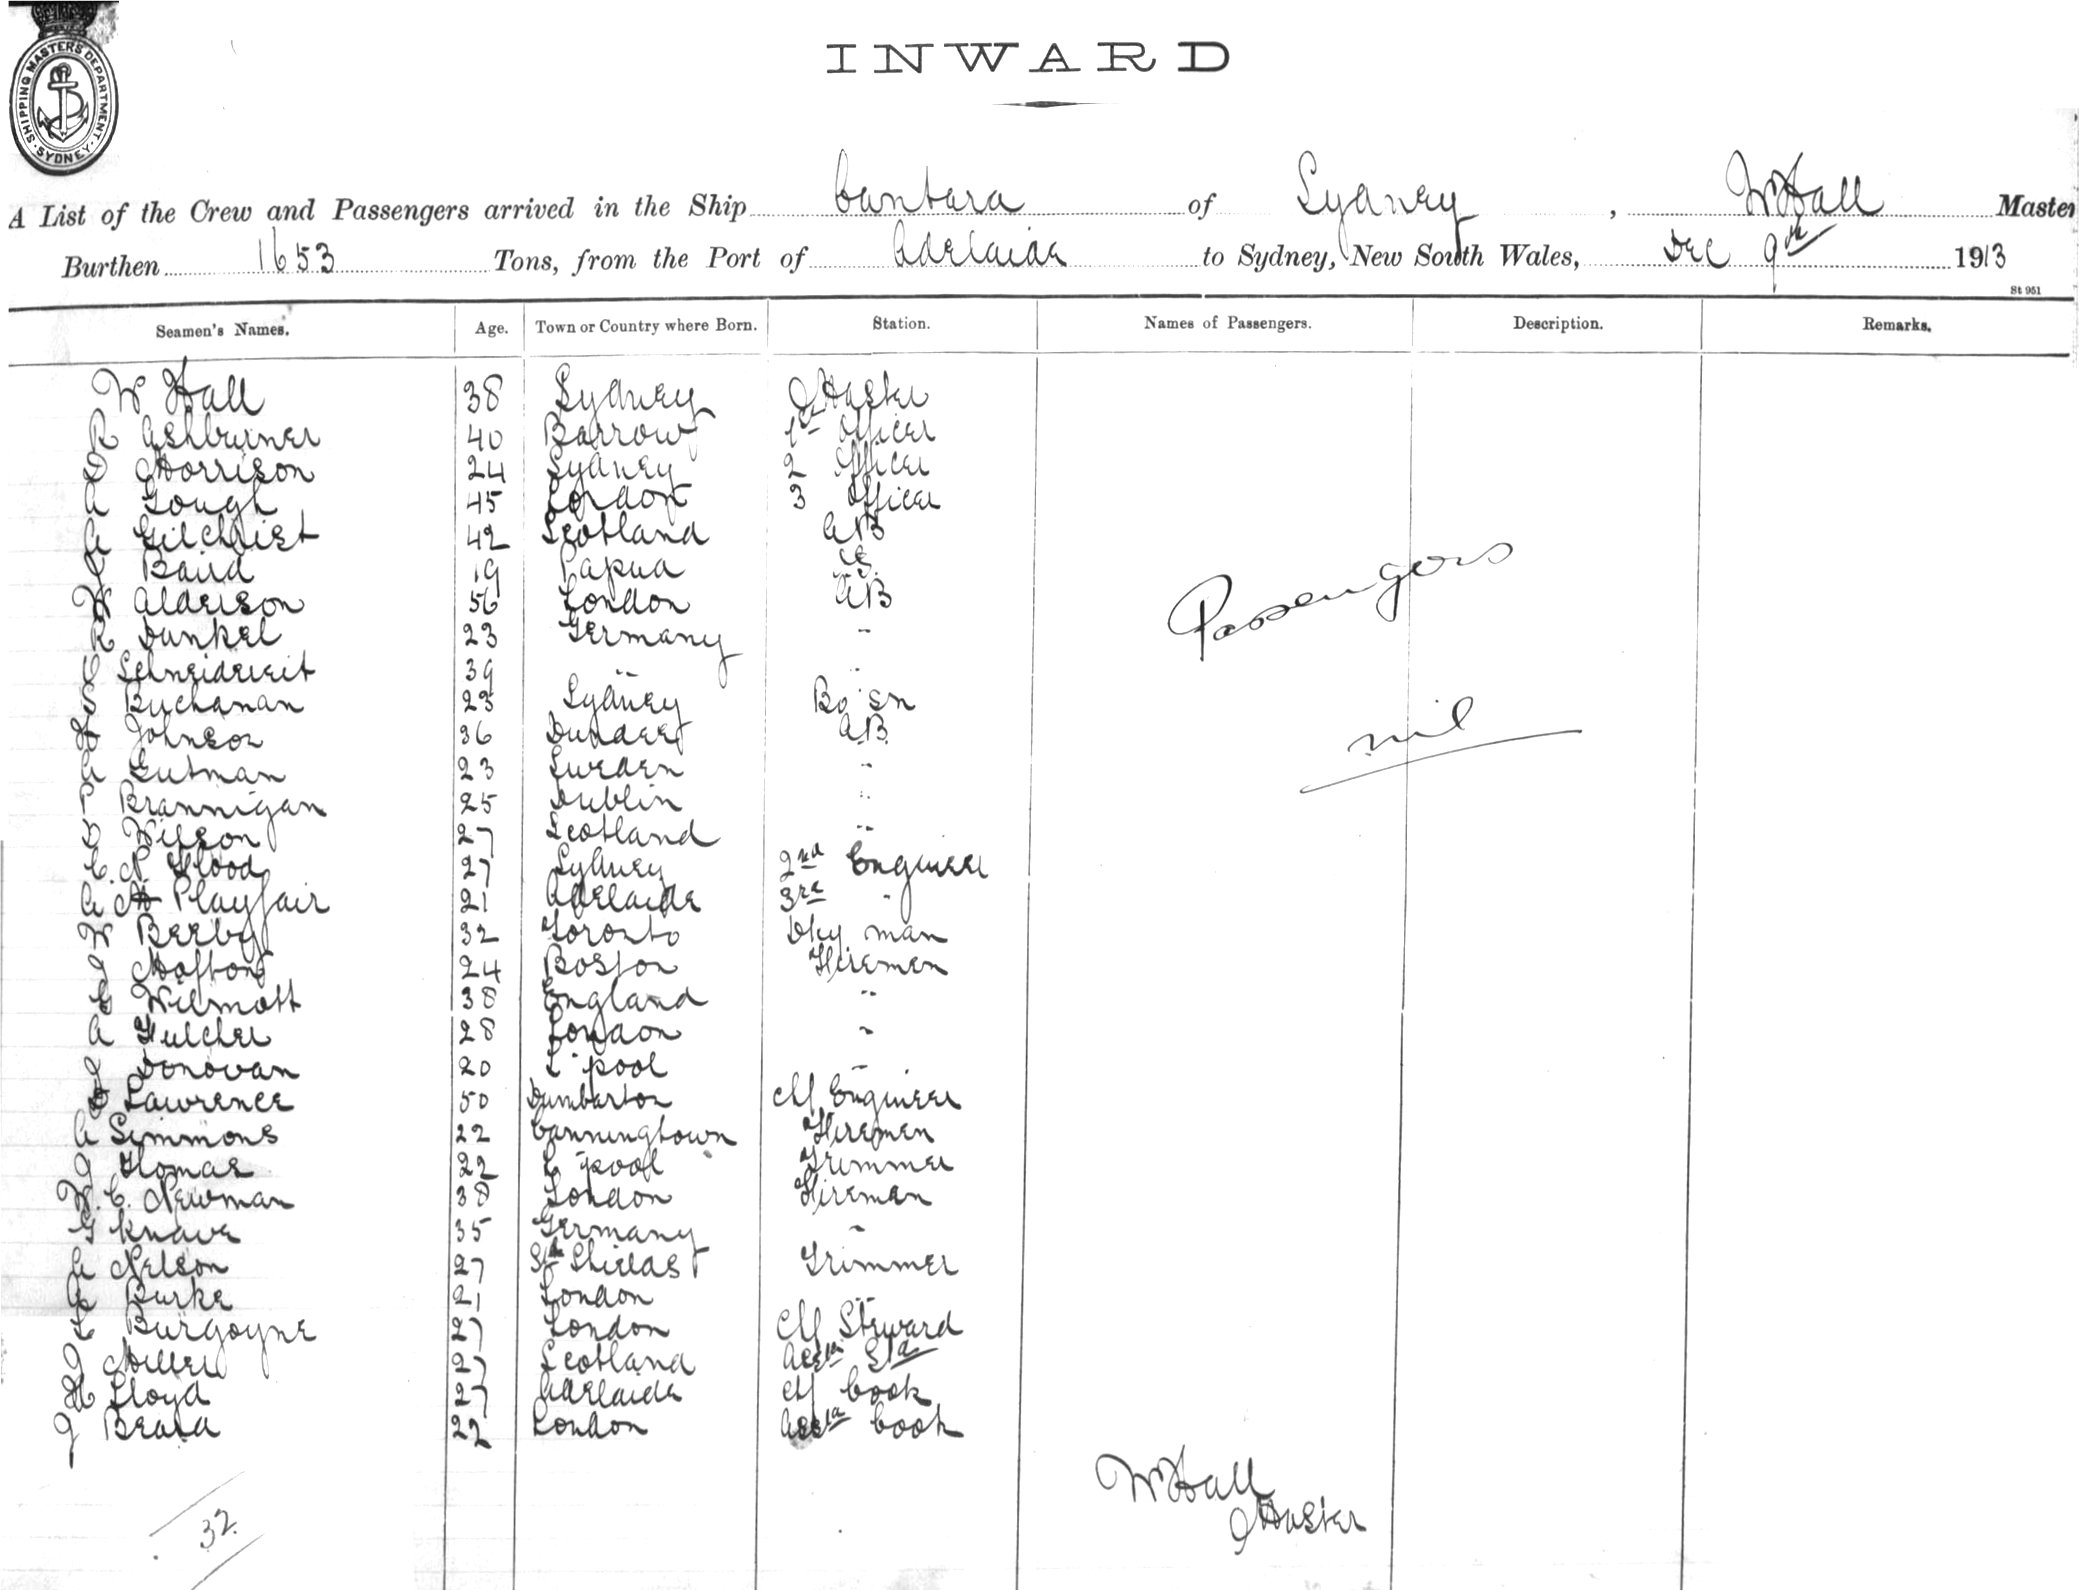 SHIPPING MASTERS DEPARTMENT · SYDNEY ·
INWARD
A List of the Crew and Passengers arrived in the Ship Cantara of Sydney, W Hall Master
Burthen 1653 Tons, from the Port of Adelaide to Sydney, New South Wales, Dec 9th 1913
St 951
Seamen's Names. Age. Town or Country where Born. Station. Names of Passengers. Description. Remarks.
W Hall 38 Sydney Master
R Ashburner 40 Barrow 1st Officer
D Morrison 24 Sydney 2 Officer
A Gough 45 London 3 Officer
A Gilchrist 42 Scotland AB
J Baird 19 Papua
W Alderson 56 London AB
R Dunkel 23 Germany "
Schneidereit 39 " "
S Buchanan 23 Sydney Bo'sn
H Johnson 36 Dundee AB
A Gutman 23 Sweden "
P Brannigan 25 Dublin "
D Wilson 27 Scotland "
C. N. Flood 27 Sydney 2nd Engineer
A H Playfair 21 Adelaide 3rd "
W Beeby 32 Toronto Dky man
J Mofton 24 Boston Firemen
E Wilmott 38 England "
A Fulcher 28 London "
J Donovan 20 L'pool "
D Lawrence 50 Dumbarton Chf Engineer
A Simmons 22 Canningtown Firemen
J Thomas 22 L'pool Trimmer
W. C. Newman 38 London Fireman
G Knave 35 Germany "
A Nelson 27 Sth Shields Trimmer
Burke 21 London "
L Burgoyne 27 London Chf Steward
J Miller 27 Scotland Asst Std
H Lloyd 27 Adelaide Chf Cook
J Beard 22 London Asst Cook
Passengers
nil
W Hall
Master
32